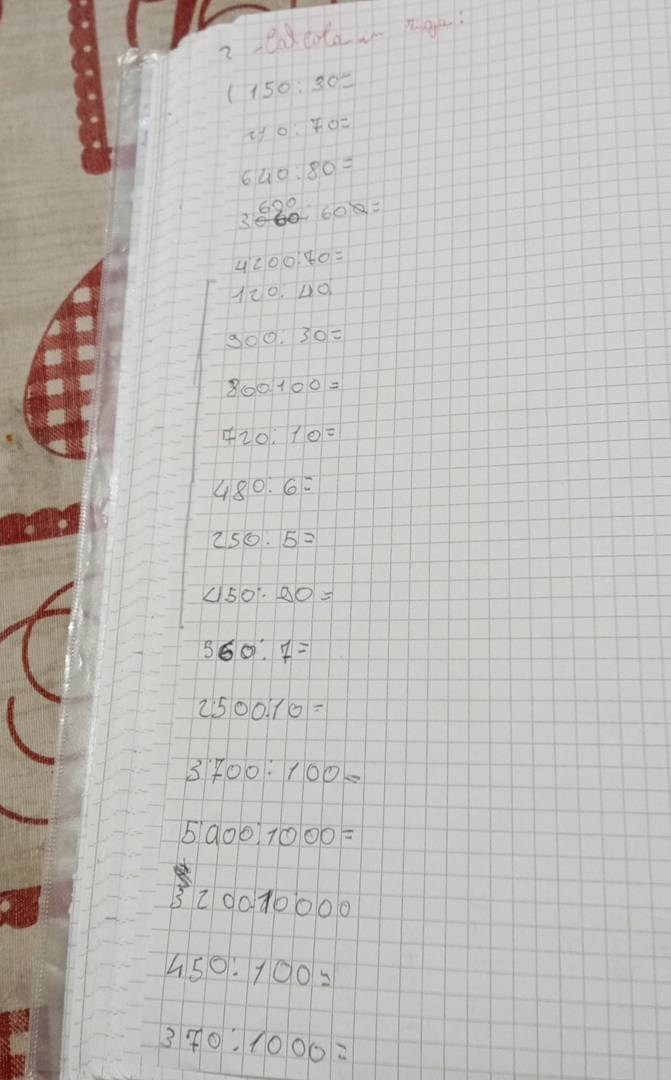 2 Calcola in riga:
150:30=
210:70=
640:80=
3600:60=
4200:70=
120:40
900:30=
800:100=
720:10=
480:6=
250:5=
450:90=
560:7=
2500:10=
3700:100=
5900:1000=
3200:10000
450:100=
370:1000=